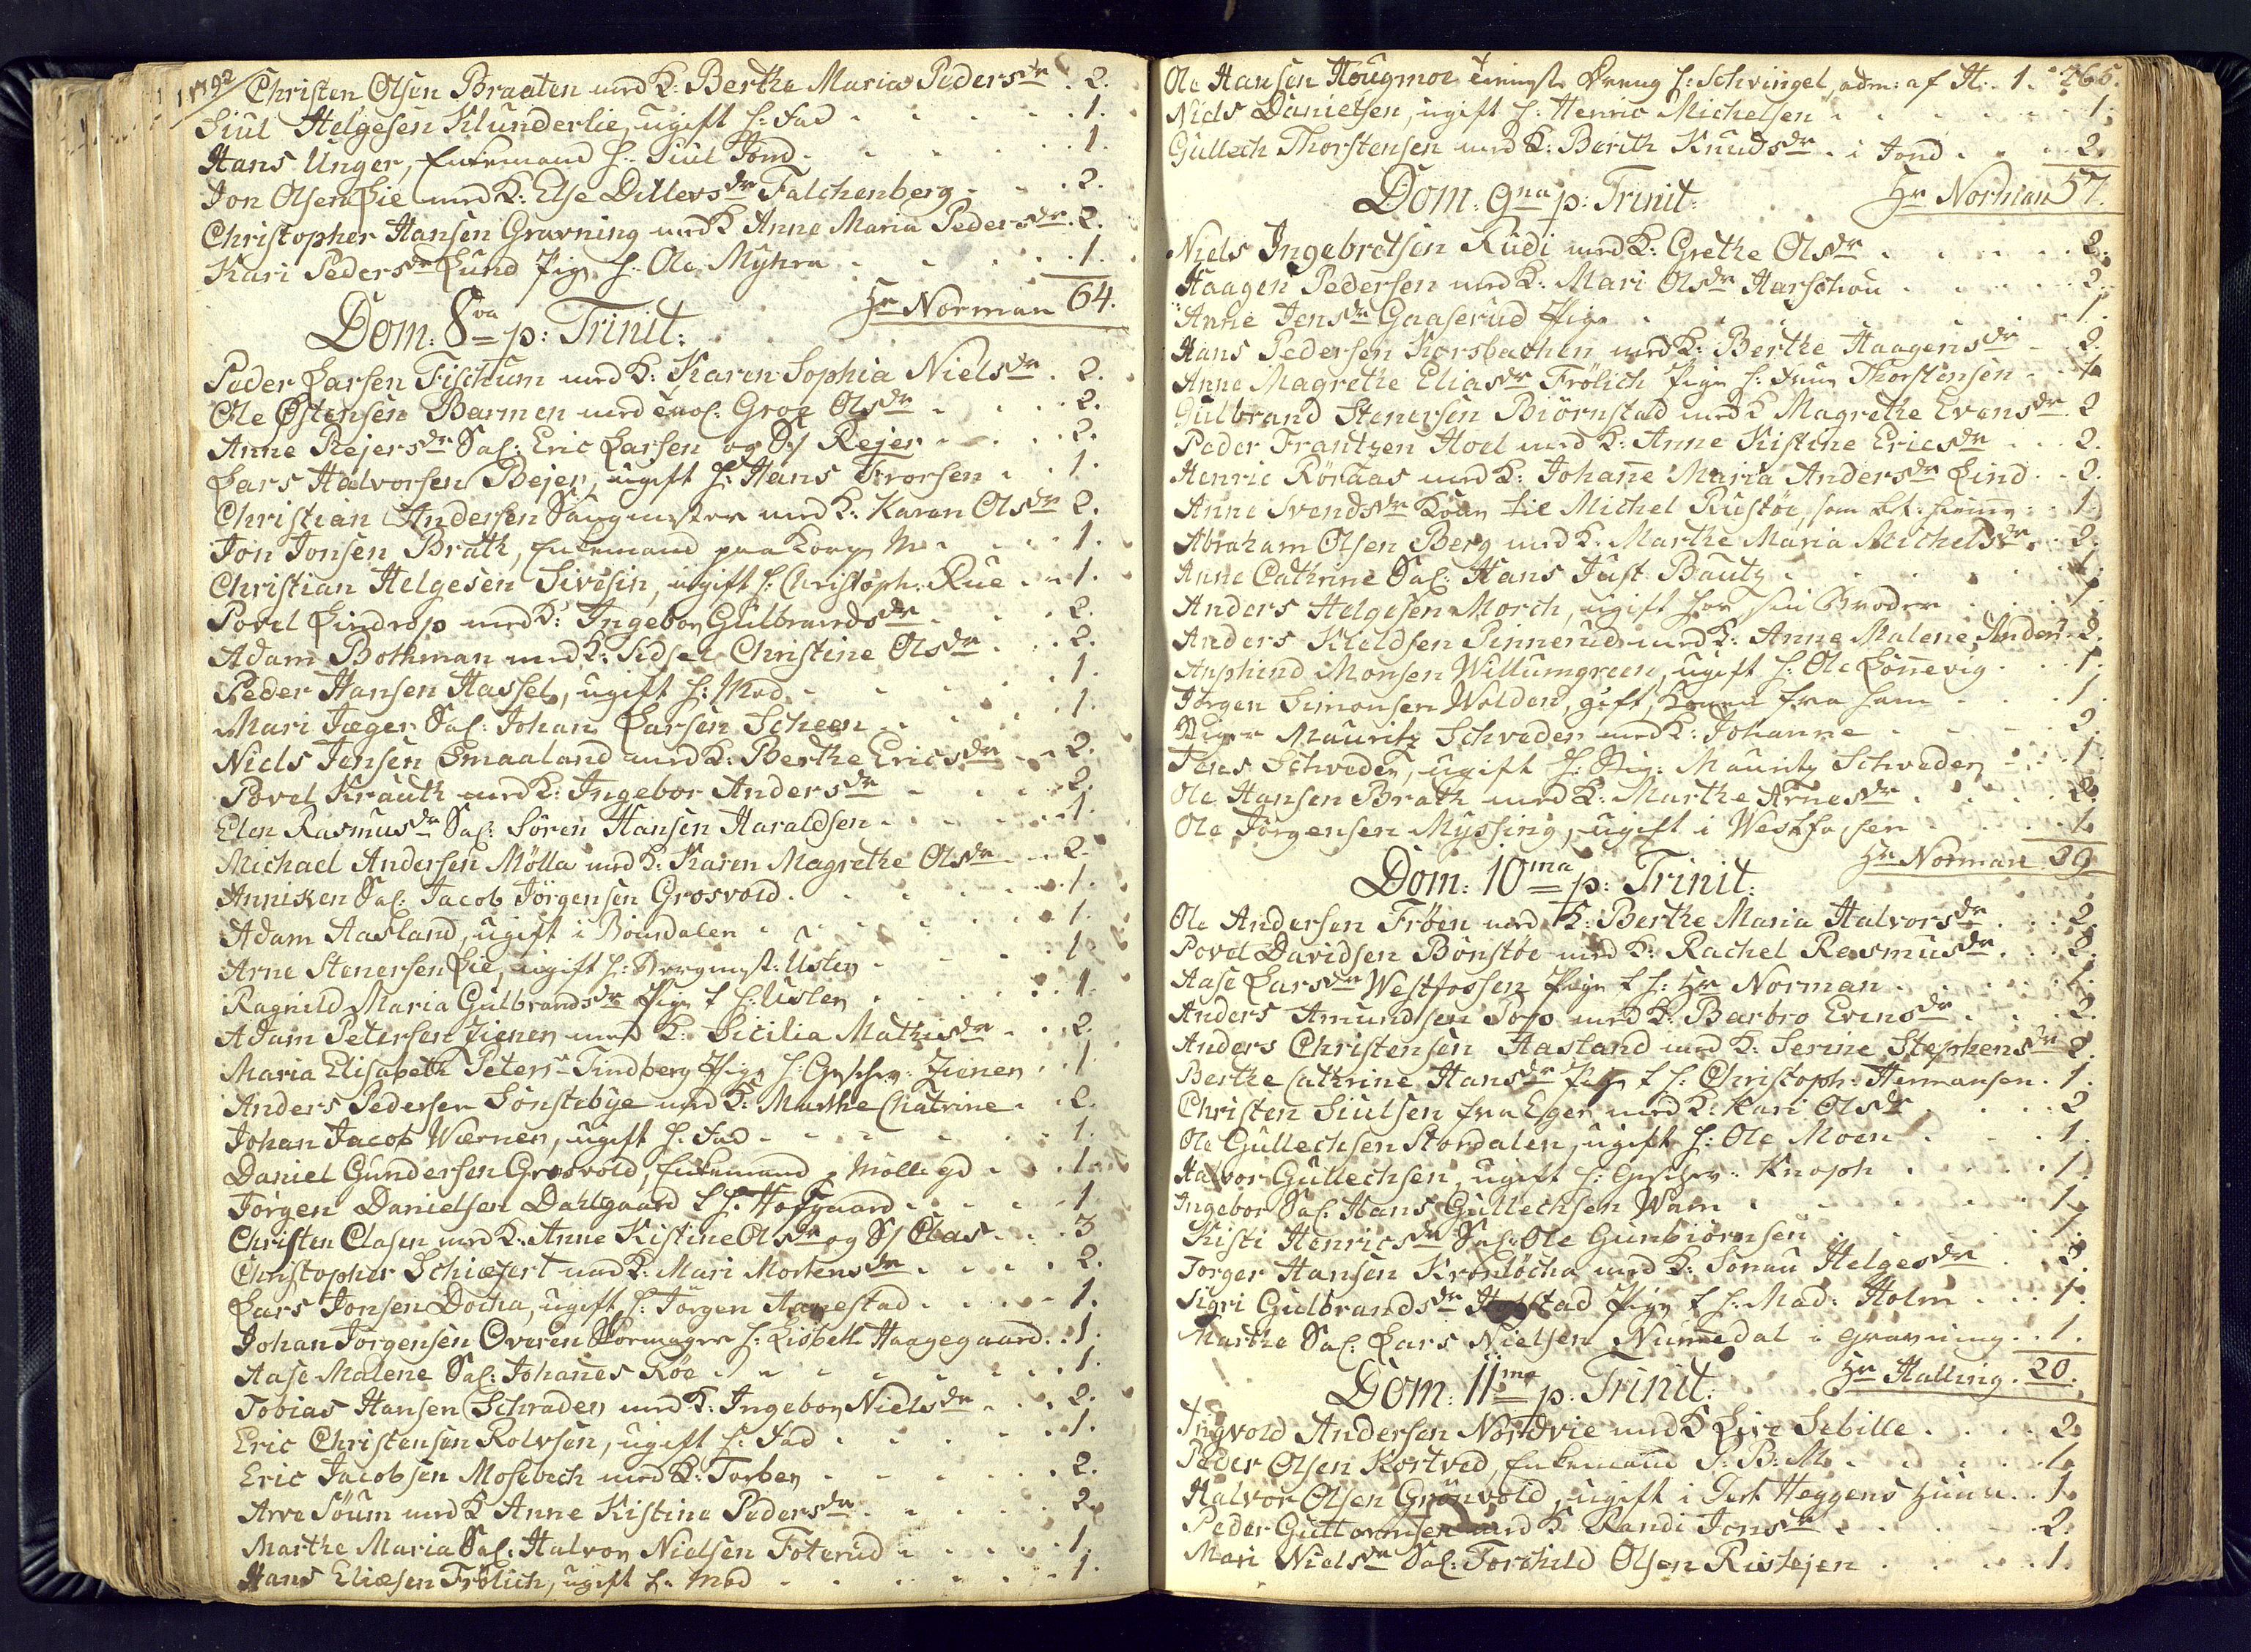 1792
Christen Olsen Braaten med K: Berthe Maria Pedersdr . 2.
Siul Helgesen Klunderlie, ugift h: Fad . . . 1.
Hans Unger, Enkemand h: Siul Jond . . . 1.
Jon Olsen Lie med K: Else Ditlevsdr Falchenberg . . . 2.
Christopher Hansen Gravning med K Anne Maria Pedersdr . 2.
Kari Pedersdr Lund Pige h: Ole Myhra . . . 1.
Hr Norman 64.
Dom: 8va p: Trinit:
Peder Larsen Fischum med K: Karen Sophia Nielsdr . 2.
Ole Østensen Barmen med Groe Olsdr . . . 2.
Anne Rejersdr Sal: Eric Larsen og S/ Rejer . . . 2.
Lars Halvorsen Bejer, ugift h: Hans Frorsen . . 1.
Christian Andersen Saugmester med K: Karen Olsdr 2.
Jon Jonsen Brath, Enkemand paa . . . 1.
Christian Helgesen Sivesin, ugift h: Christoph: Rue . . 1.
Povel Lindrop med K: Ingebor Gulbrandsdr . . 2.
Adam Bothman med K: Sidsel Christine Olsdr . . 2.
Peder Hansen Hassel, ugift h: Mod . . . 1.
Mari Jæger Sal: Johan Larsen Scheen . . . 1.
Niels Jensen Smaaland med K: Berthe Ericsdr . . 2.
Povel Krauth med K: Ingebor Andersdr . . . 2.
Elen Rasmusdr Sal: Sören Hansen Haraldsen . . . 1.
Michael Andersen Mölla med K: Karen Magrethe Olsdr . . 2.
Anniken Sal: Jacob Jörgensen Grosvold . . . 1.
Adam Aasland, ugift i . . . 1.
Arne Stenersen Lie, ugift h: Bergmest: Usler . . . 1
Ragnild Maria Gulbrandsdr Pige t h: Usler . . . 1.
Adam Petersen Zienen med K: Sicilia Mathisdr . . 2.
Maria Elisabeth Petersdr Tindberg Pige h: Zienen . 1
Anders Pedersen Sönstebye med K: Marthe Chatrine . . 2.
Johan Jacob Wærner, ugift h: Fad . . . 1.
Daniel Gundersen Grosvold, Enkemand . . . 1.
Jörgen Danielsen Dahlgaard t h: Hofgaard . . . 1
Christen Clasen med K: Anne Kistine Olsdr og S/ Clas . . 3
Christopher Schiæfert med K: Mari Mortensdr . . . 2.
Lars Jonsen Docha, ugift h: Jörgen Aanestad . . . 1.
Johan Jörgensen Overen Skomager h: Lisbeth Haagegaard . 1.
Aase Malene Sal: Johanes Röe . . . 1.
Tobias Hansen Schrader med K: Ingebor Nielsdr . . . 2.
Eric Christensen Rolvsen, ugift h: Fad . . . 1.
Eric Jacobsen Mosebech med K: Torber . . . 2.
Arve Söum med K Anne Kistine Pedersdr . . . 2
Marthe Maria Sal: Halvor Nielsen Foterud . . . 1.
Hans Eliæsen Frölich, ugift h: Mod . . . 1.
Ole Hansen Hougmoe Dreng h: Schvingel, adm: af H: . 1. 265.
Niels Danielsen, ugift h: Henric Michelsen . . . 1.
Gullech Thorstensen med K: Berith Knudsdr . i Jond . . 2.
Dom: 9na p: Trinit: Hr Norman 57.
Niels Ingebretsen Rudi med K: Grethe Olsdr . . . 2.
Haagen Pedersen med K: Mari Olsdr Harschou . . . 2.
Anne Jensdr Gaaserud Pige . . . 1.
Hans Pedersen Korsbachen med K: Berthe Haagensdr . 2.
Anne Magrethe Eliasdr Frölich Pige h: Thorstensen . . 1
Gulbrand Stenersen Biörnstad med K Magrethe Evensdr . 2
Peder Frantzen Hoel med K: Anne Kistine Ericsdr . . 2.
Henric Röraas med K: Johane Maria Andersdr Lind . . 2.
Anne Svendsdr Kone til Michel Rustöe, som . . 1.
Abraham Olsen Berg med K: Marthe Maria Michelsdr . . 2.
Anne Cathrine Sal: Hans Just Bautz . . . 1.
Anders Helgesen Morch, ugift hos sin Broder . . . 1.
Anders Kieldsen Pinnerud med K: Anne Malene Anders: 2.
Anphind Monsen Willumgreen, ugift h: Ole Lönnevig . . 1.
Jörgen Simonsen Wolden, gift, Konen fra ham . . . 1.
Mauritz Schveder med K: Johanne . . . 2.
Jens Schveder, ugift h: Mauritz Schveder . . . 1.
Ole Hansen Brath med K: Marthe Arnesdr . . . 2.
Ole Jörgensen Myssing, ugift i Westfossen . . . 1.
Dom: 10ma p: Trinit: Hr Norman 29
Ole Andersen Fröen med K: Berthe Maria Halvorsdr . . 2.
Povel Davidsen Bönstöe med K: Rachel Rasmusdr . . . 2.
Aase Larsdr Westfossen Pige t h: Hr Norman . . . 1.
Anders Amundsen Torp med K: Barbro Evensdr . . . 2.
Anders Christensen Aasland med K: Serine Stephensdr 2.
Berthe Cathrine Hansdr Pige t h: Christoph: Hermansen . 1.
Christen Siulsen fra Eger med K: Kari Olsdr . . . 2
Ole Gullechsen Stordalen, ugift h: Ole Moen . . . 1.
Halvor Gullechsen, ugift h: Knoph . . . 1.
Ingebor Sal: Hans Gullechsen Wam . . . 1.
Kisti Henricsdr Sal: Ole Gunbiörnsen . . . 1.
Torger Hansen Kronlöcha med K: Sönau Helgesdr . 2.
Sigri Gulbrandsdr Hobstad Pige t h: Mad: Holm . . . 1.
Marthe Sal: Lars Nielsen Nummedal i Gravning . . 1.
Dom: 11ma p: Trinit: Hr Halling . 20.
Ingvold Andersen Nordvie med K Live Sebille . . . 2.
Peder Olsen Kortved, Enkemand P: B: M. . . . 1.
Halvor Olsen Grönvold, ugift i Gert Heggens Huus . . 1.
Peder Guttormsen med K Randi Jonsdr . . . 2.
Mari Nielsdr Sal: Torchild Olsen Ristejen . . . 1.